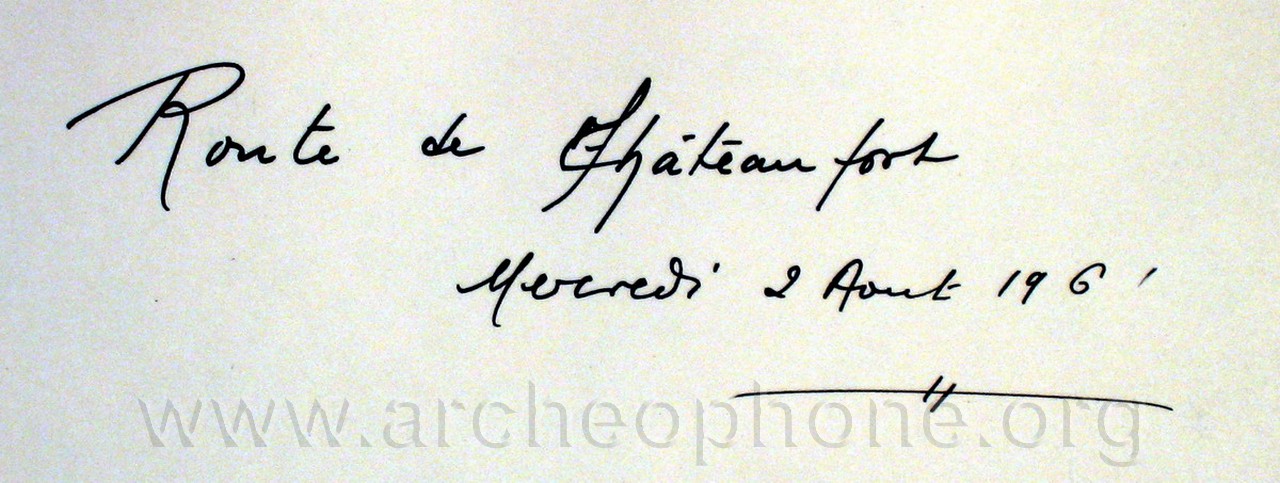 Route de Châteaufort
Mercredi 2 Aout 1961
www.archeophone.org